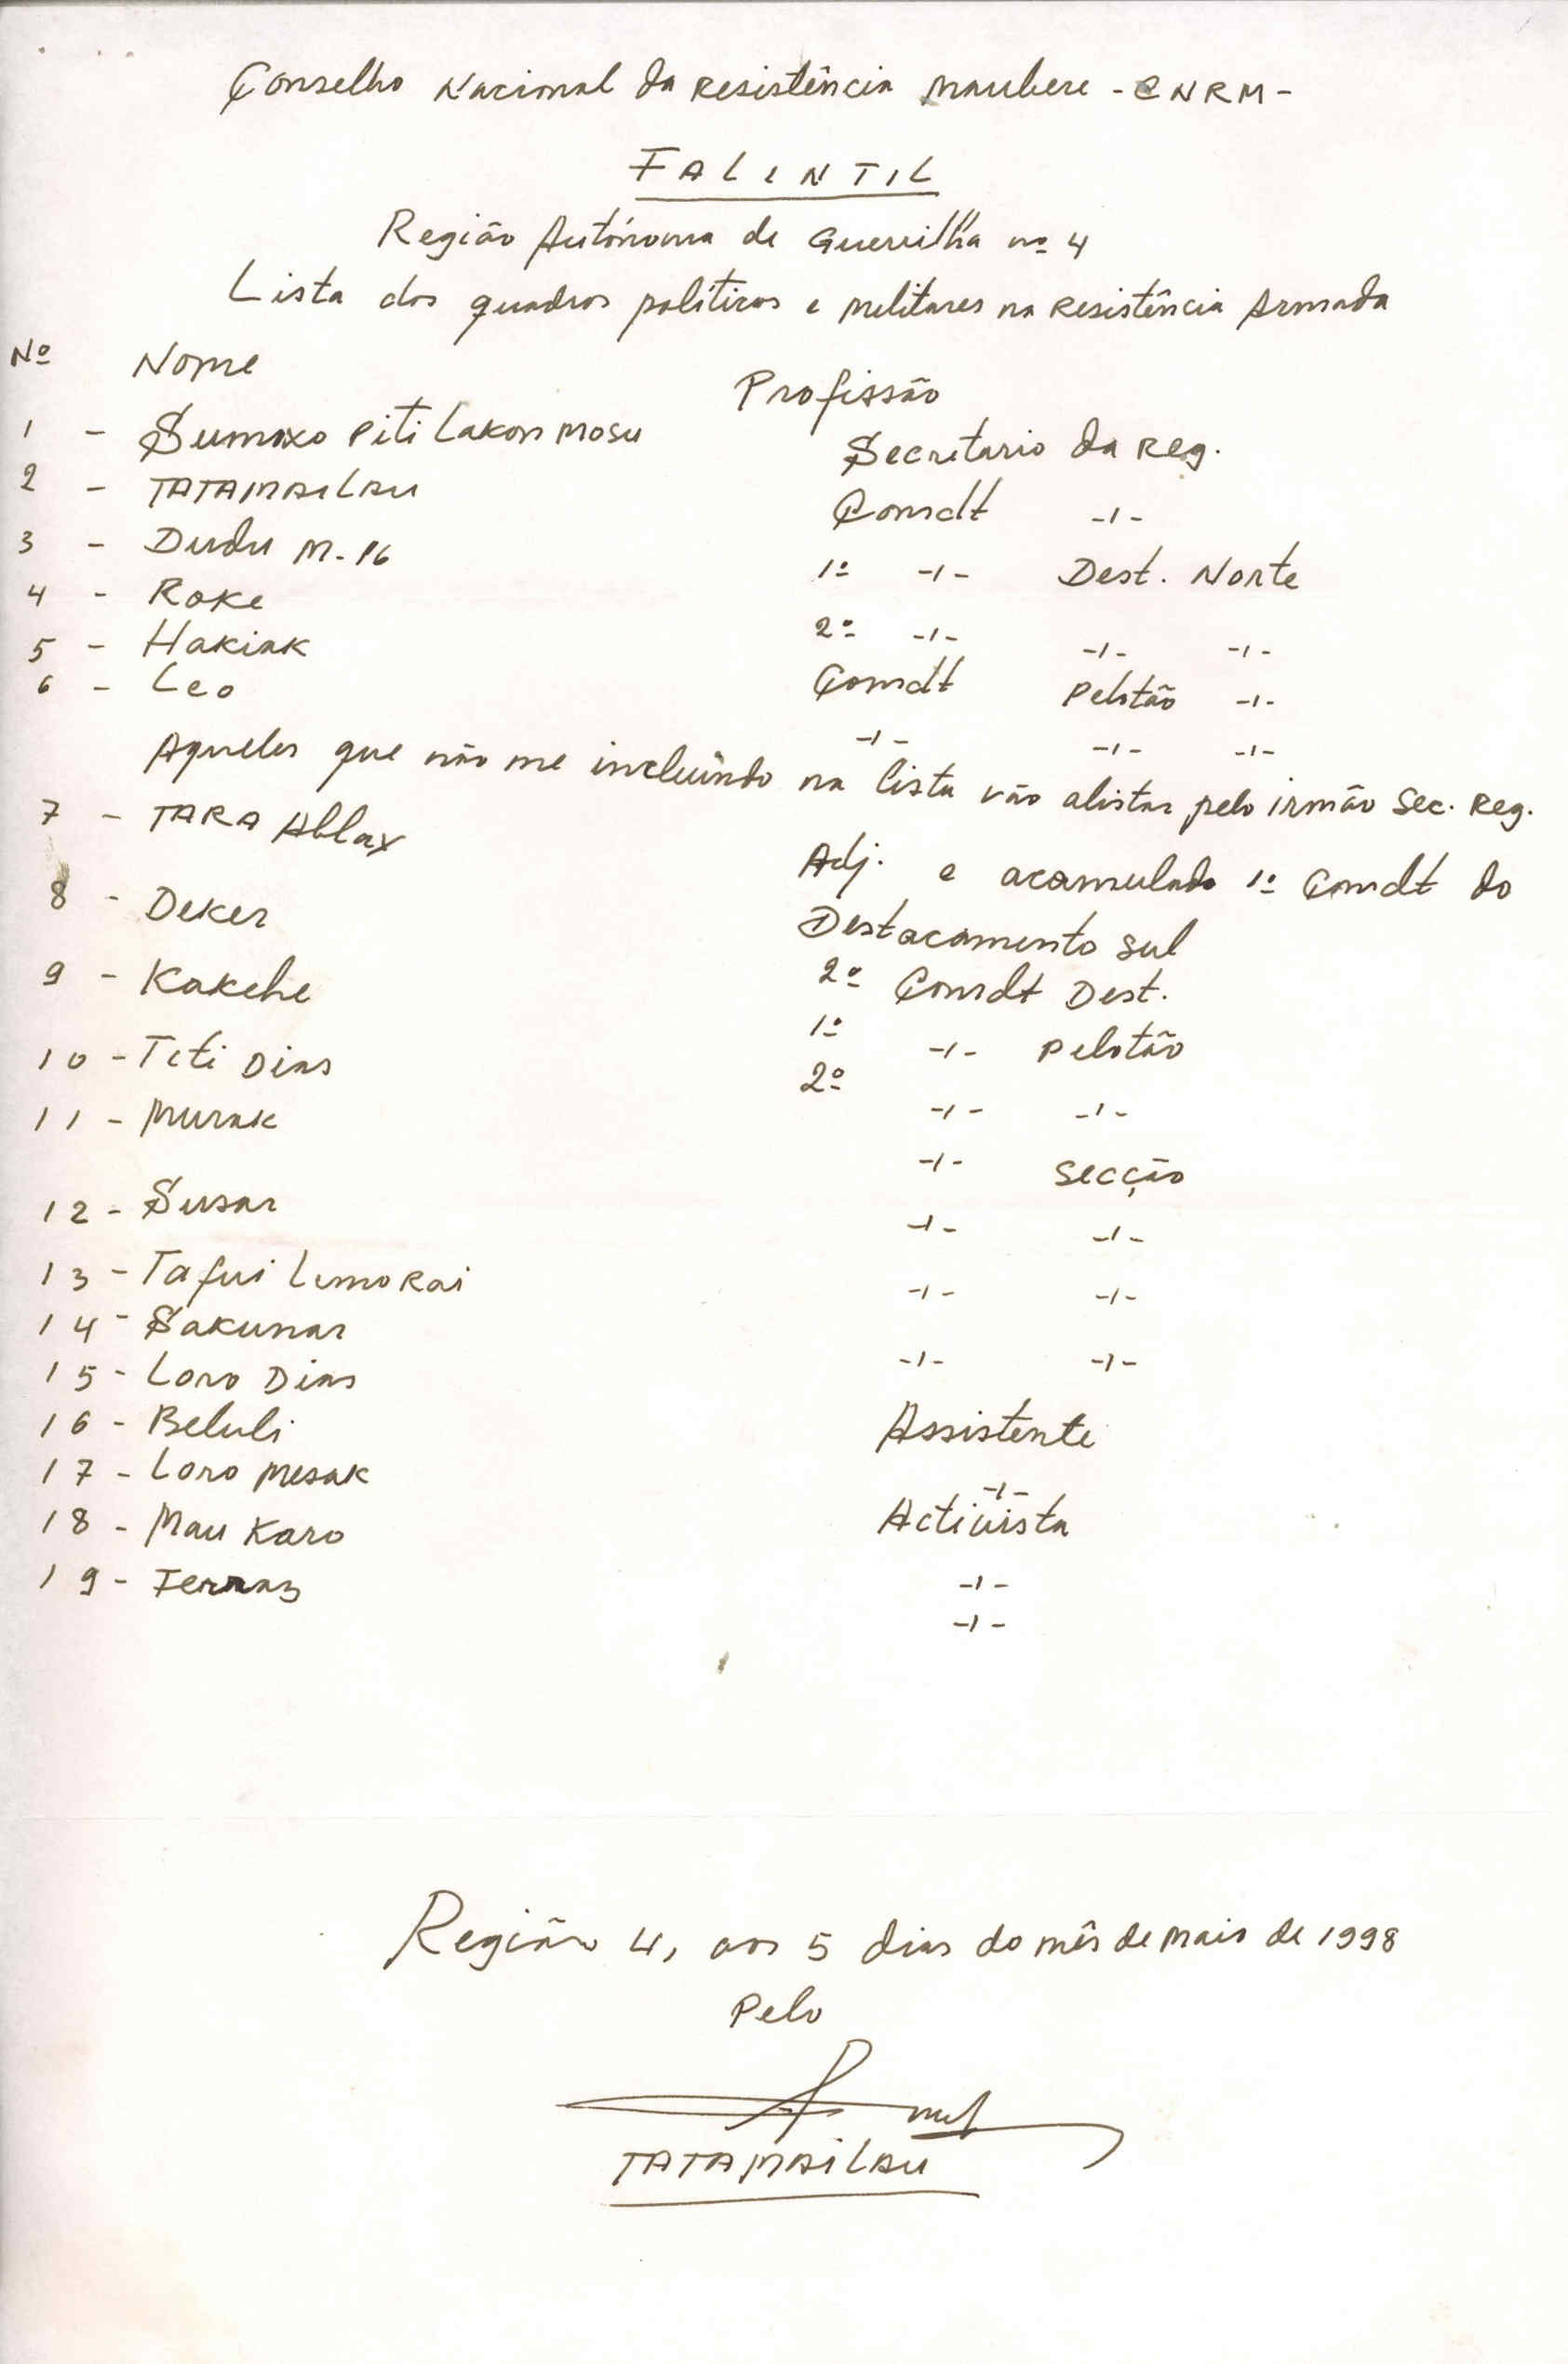 Conselho Nacional da Resistência Maubere - CNRM -
FALINTIL
Região Autónoma de Guerrilha nº 4
Lista dos quadros políticos e militares na Resistência Armada
Nº Nome Profissão
1 - Sumoxo Piti Lakon Mosu Secretario da Reg.
2 - TATAMAILAU Comdt -/-
3 - Dudu M-16 1º -/- Dest. Norte
4 - Roke 2º -/- -/- -/-
5 - Hakiak Comdt Pelotão -/-
6 - Leo -/- -/- -/-
Aqueles que não me incluíndo na lista vão alistar pelo irmão Sec. Reg.
7 - TARA Ablax Adj. e acamulado 1º Comdt do
Destacamento Sul
8 - Deker 2º Comdt Dest.
9 - Kakehe 1º -/- Pelotão
10 - Teti Dias 2º -/- -/-
11 - Murak -/- Secção
12 - Susar -/- -/-
13 - Tafui Limo Rai -/- -/-
14 - Sakunar -/- -/-
15 - Loro Dias Assistente
16 - Beluli -/-
17 - Loro Mesak Activista
18 - Mau Karo -/-
19 - Ferraz -/-
Região 4, aos 5 dias do mês de Maio de 1998
Pelo
TATAMAILAU